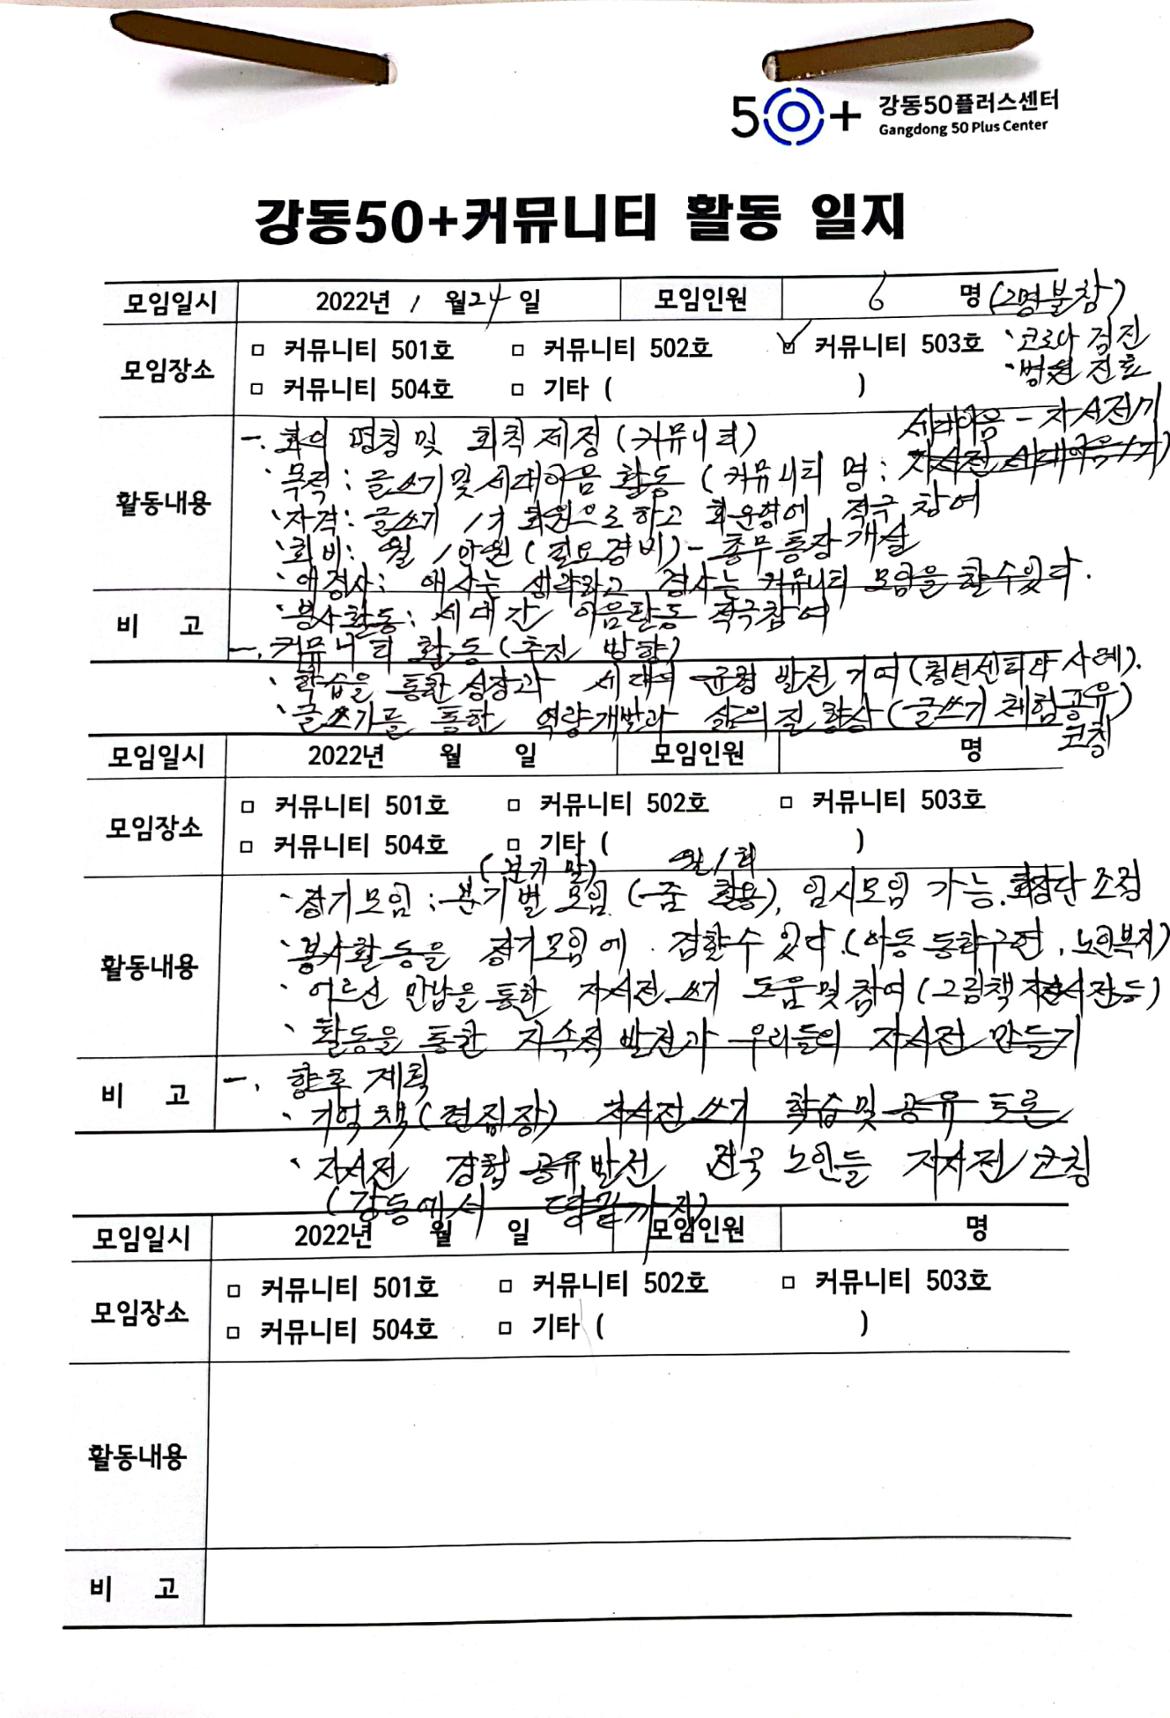 50+ 강동50플러스센터
Gangdong 50 Plus Center
강동50+커뮤니티 활동 일지
모임일시 2022년 1 월 24 일 모임인원 6 명 (2명 불참)
모임장소 □ 커뮤니티 501호 □ 커뮤니티 502호 ☑ 커뮤니티 503호 · 코로나 검진
□ 커뮤니티 504호 □ 기타 ( ) · 병원 진료
세대이음 - 자서전기
활동내용 一. 회의 명칭 및 회칙 제정 (커뮤니티)
· 목적 : 글쓰기 및 세대이음 활동 (커뮤니티 명 :
· 자격 : 글쓰기 1기 회원으로 하고 회운영에 적극 참여
· 회비 : 월 1만원 (필요경비) - 총무 통장 개설
· 애경사 : 애사는 생략하고 경사는 커뮤니티 모임을 할 수 있다.
비 고 · 봉사활동 : 세대간 이음활동 적극참여
一. 커뮤니티 활동 (추진 방향)
· 학습을 통한 성장과 세대의 균형 발전 기여 (청년센터와 사례).
· 글쓰기를 통한 역량개발과 삶의 질 향상 (글쓰기 체험공유)
코칭
모임일시 2022년 월 일 모임인원 명
모임장소 □ 커뮤니티 501호 □ 커뮤니티 502호 □ 커뮤니티 503호
□ 커뮤니티 504호 □ 기타 ( )
(분기 말) 월 1회
활동내용 · 정기모임 : 분기별 모임 (줌 활용), 임시모임 가능. 회장단 조정
· 봉사활동을 정기모임에 겸할 수 있다. (아동 동화구연, 노인복지)
· 어르신 만남을 통한 자서전 쓰기 도움 및 참여 (그림책 자서전 등)
· 활동을 통한 지속적 발전과 우리들의 자서전 만들기
비 고 一. 향후 계획
· 기억책 (편집장) 자서전 쓰기 학습 및 공유 토론
· 자서전 경험 공유 발전 전국 노인들 자서전 코칭
(강동에서 땅끝까지)
모임일시 2022년 월 일 모임인원 명
모임장소 □ 커뮤니티 501호 □ 커뮤니티 502호 □ 커뮤니티 503호
□ 커뮤니티 504호 □ 기타 ( )
활동내용
비 고